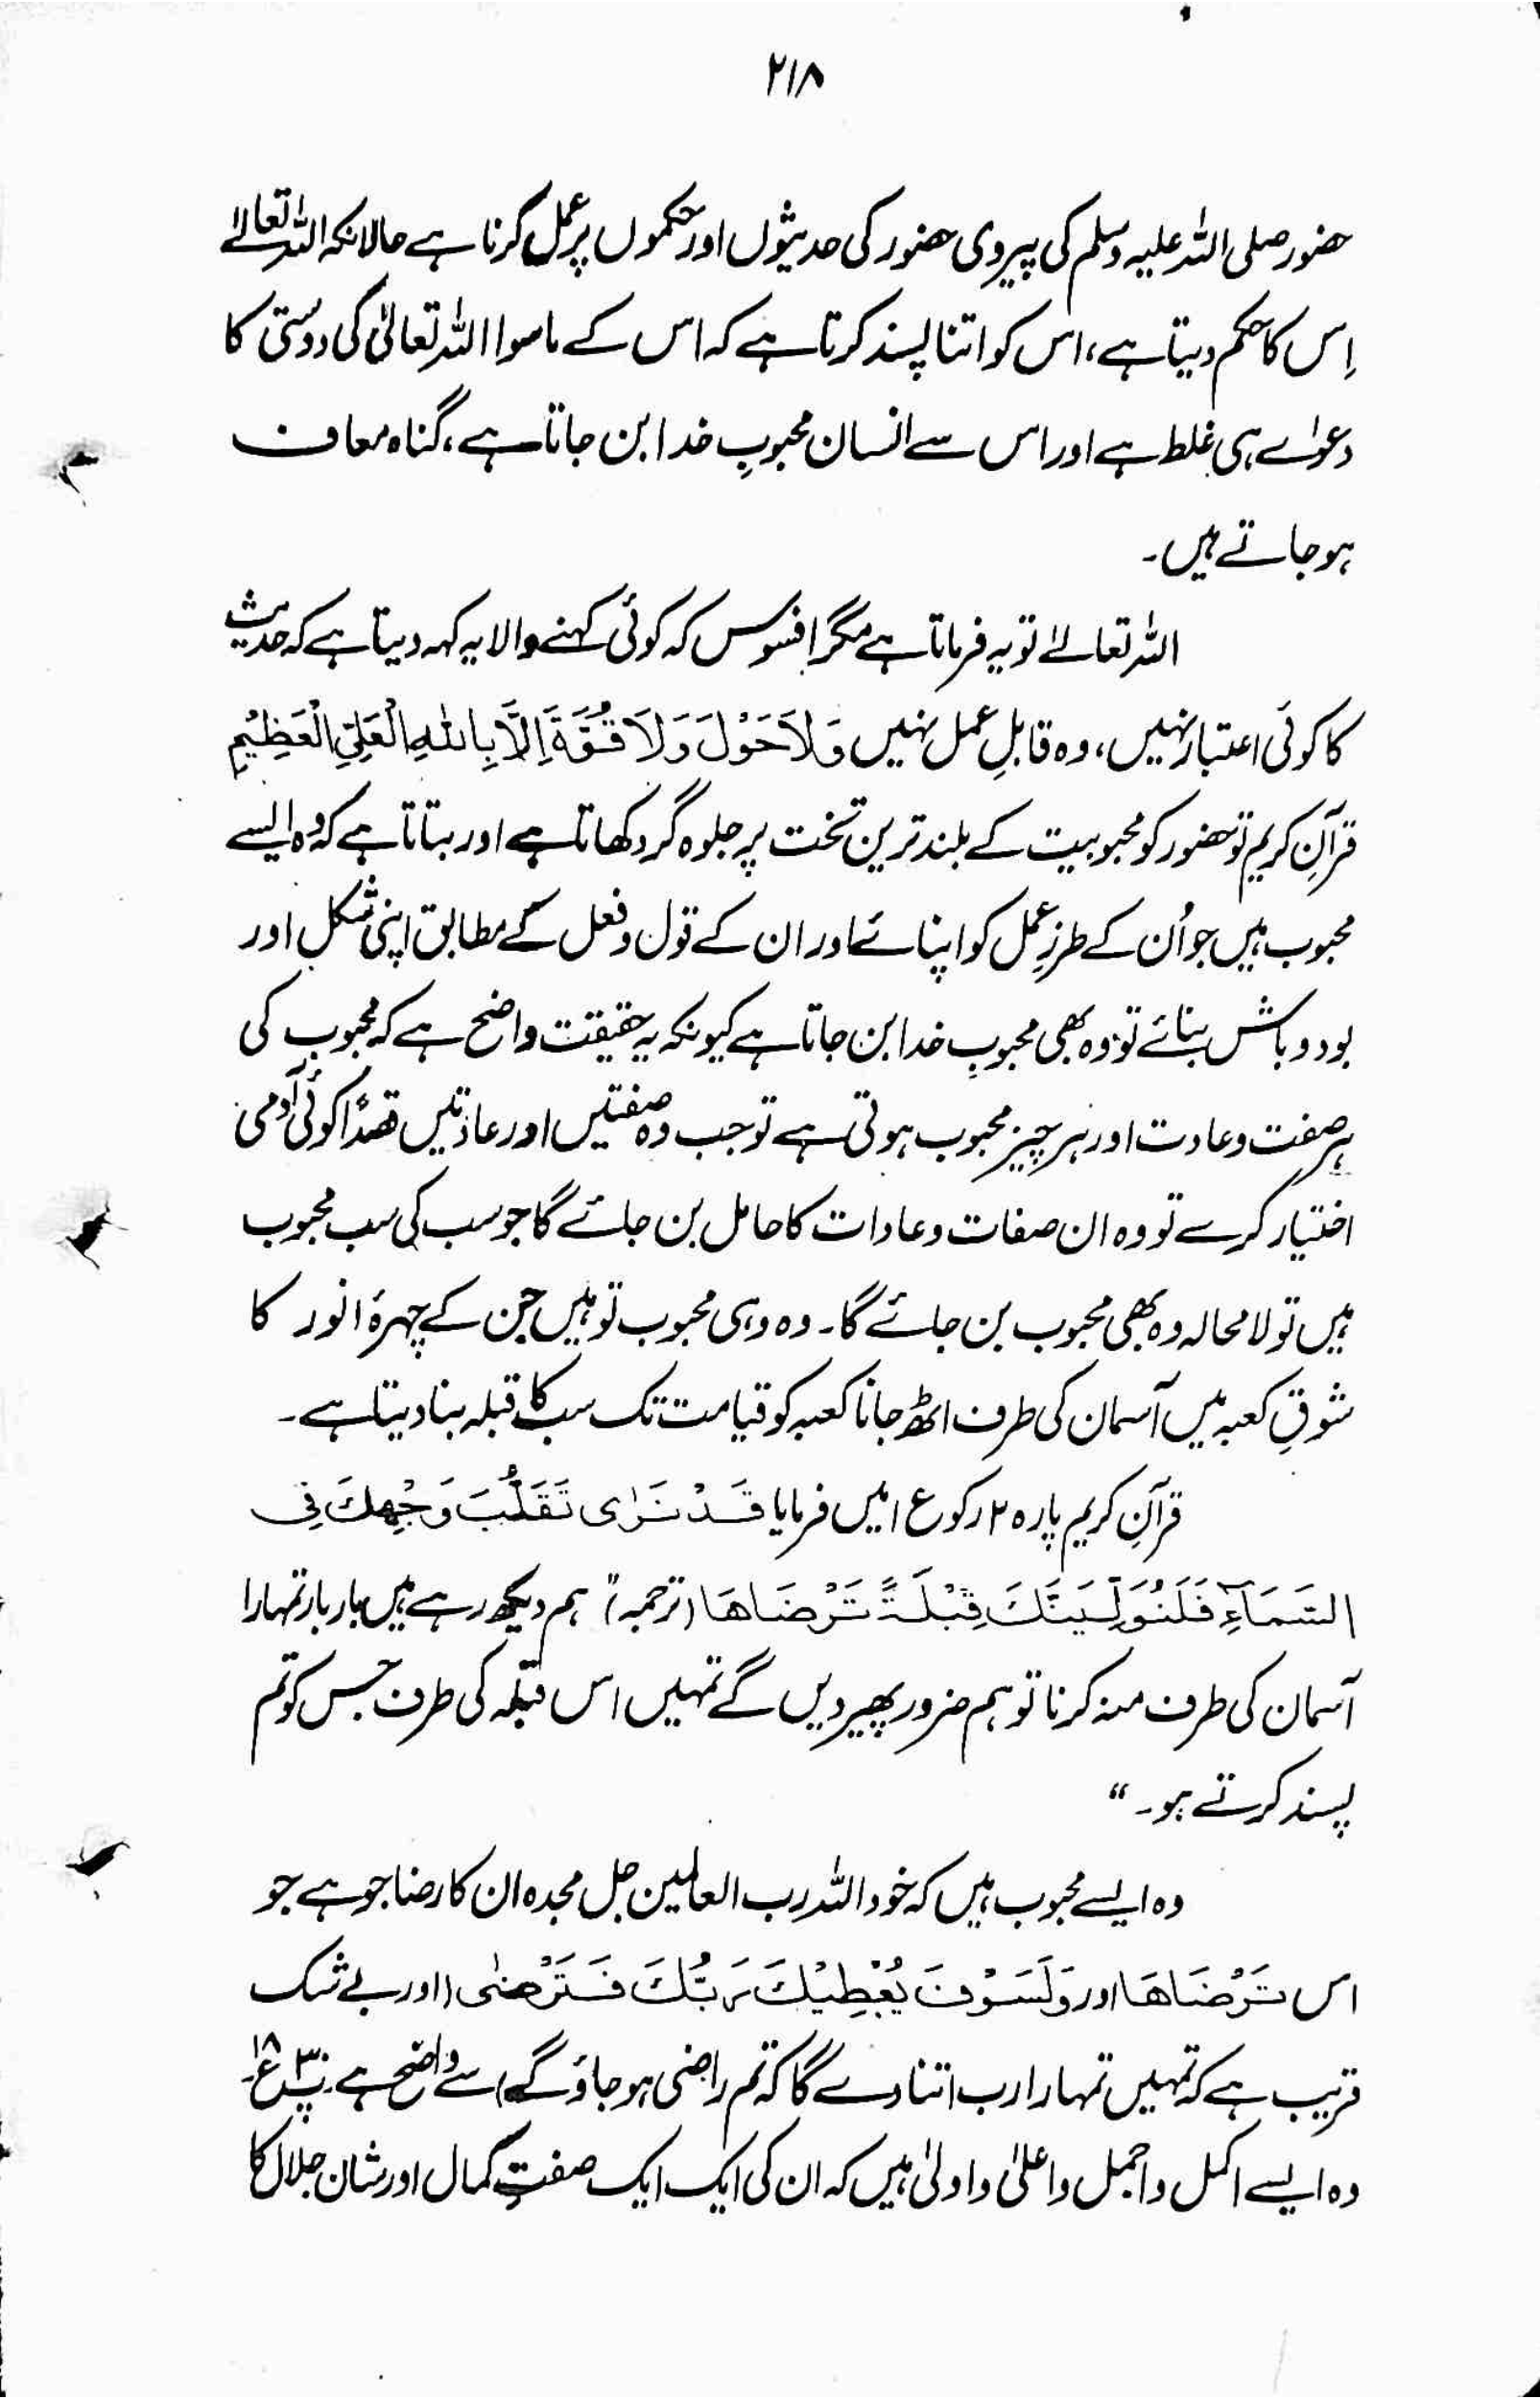 ۲۱۸
حضور صلی اللہ علیہ وسلم کی پیروی حضور کی حدیثوں اور حکموں پر عمل کرنا ہے حالانکہ اللہ تعالےٰ
اِس کا حکم دیتا ہے، اس کو اتنا پسند کرتا ہے کہ اس کے ماسوا اللہ تعالیٰ کی دوستی کا
دعواے ہی غلط ہے اور اس سے انسان محبوبِ خدا بن جاتا ہے، گناہ معاف
ہو جاتے ہیں۔
اللہ تعالےٰ تو یہ فرماتا ہے مگر افسوس کہ کوئی کہنے والا یہ کہہ دیتا ہے کہ حدیث
کا کوئی اعتبار نہیں، وہ قابلِ عمل نہیں وَلَاحَوْلَ وَلَا قُوَّةَ اِلَّا بِاللهِ الْعَلِيِّ الْعَظِيْمِ
قرآنِ کریم تو حضور کو محبوبیت کے بلند ترین تخت پر جلوہ گر دکھاتا ہے اور بتاتا ہے کہ وہ ایسے
محبوب ہیں جو اُن کے طرزِ عمل کو اپنائے اور ان کے قول و فعل کے مطابق اپنی شکل اور
بود و باش بنائے تو وہ بھی محبوبِ خدا بن جاتا ہے کیونکہ یہ حقیقت واضح ہے کہ محبوب کی
ہر صفت و عادت اور ہر چیز محبوب ہوتی ہے تو جب وہ صفتیں اور عادتیں قصدًا کوئی آدمی
اختیار کرے تو وہ ان صفات و عادات کا حامل بن جائے گا جو سب کی سب محبوب
ہیں تو لا محالہ وہ بھی محبوب بن جائے گا۔ وہ وہی محبوب تو ہیں جن کے چہرۂ انور کا
شوقِ کعبہ میں آسمان کی طرف اٹھ جانا کعبہ کو قیامت تک سب کا قبلہ بنا دیتا ہے۔
قرآنِ کریم پارہ ۲ رکوع ۱ میں فرمایا قَدْ نَرٰى تَقَلُّبَ وَجْهِكَ فِي
السَّمَآءِ فَلَنُوَلِّيَنَّكَ قِبْلَةً تَرْضَاهَا (ترجمہ) ”ہم دیکھ رہے ہیں بار بار تمہارا
آسمان کی طرف منہ کرنا تو ہم ضرور پھیر دیں گے تمہیں اس قبلہ کی طرف جس کو تم
پسند کرتے ہو۔“
وہ ایسے محبوب ہیں کہ خود اللہ رب العالمین جل مجدہ ان کا رضا جو ہے جو
اس تَرْضَاهَا اور وَلَسَوْفَ يُعْطِيْكَ رَبُّكَ فَتَرْضٰى (اور بے شک
قریب ہے کہ تمہیں تمہارا رب اتنا دے گا کہ تم راضی ہو جاؤ گے) سے واضح ہے۔ پ ۳۰ ع ۱۸۔
وہ ایسے اکمل و اجمل و اعلیٰ و اولیٰ ہیں کہ ان کی ایک ایک صفتِ کمال اور شان جلال کا